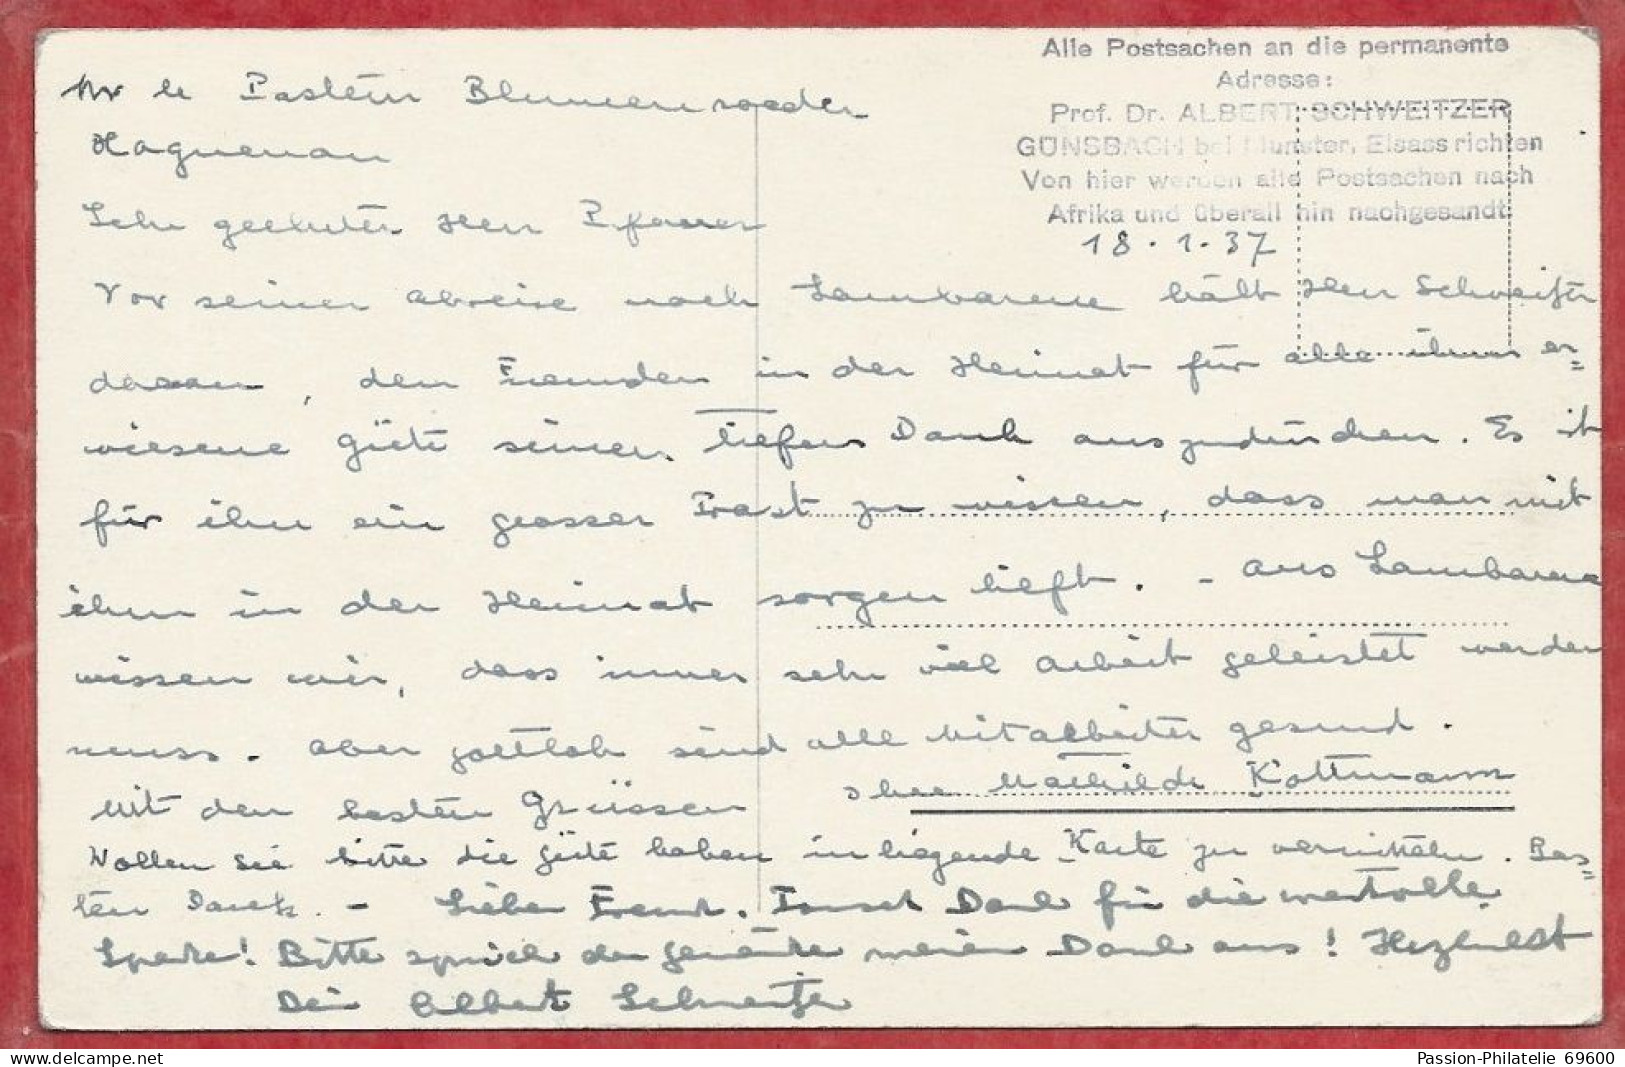 Alle Postsachen an die permanente
Adresse:
Prof. Dr. ALBERT SCHWEITZER
GÜNSBACH bei Munster, Elsass richten
Von hier werden alle Postsachen nach
Afrika und überall hin nachgesandt.
18.1.37
Mr le Pasteur Blumenroeder
Haguenau
Sehr geehrter Herr Pfarrer
Vor seiner Abreise nach Lambarene hält Herr Schweitzer
daran, den Freunden in der Heimat für alle ihm er=
wiesene Güte seinen tiefen Dank auszudrücken. Es ist
für ihn ein grosser Trost zu wissen, dass man mit
ihm in der Heimat sorgen hilft. - Aus Lambarene
wissen wir, dass immer sehr viel Arbeit geleistet werden
muss. Aber gottlob sind alle Mitarbeiter gesund.
Mit den besten Grüssen
Ihre Mathilde Kottmann
Wollen Sie bitte die Güte haben inliegende Karte zu vermitteln. Bes=
ten Dank. - Lieber Freund. Tausend Dank für die wertvolle
Bitte sprich der Gemeinde meinen Dank aus! Herzlichst
Dein Albert Schweitzer
Passion-Philatelie 69600